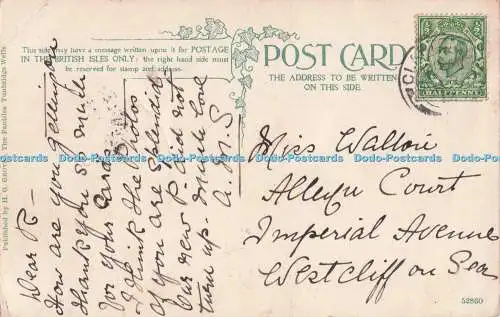 This side may have a message written upon it for POSTAGE
IN THE BRITISH ISLES ONLY: the right hand side must
be reserved for stamp and address.
POST CARD
THE ADDRESS TO BE WRITTEN
ON THIS SIDE.
HALFPENNY
Dear R—
How are you getting on
thank you so much
for your card
I think the Photos
of you are splendid
Our new P. did not
turn up. much love
A.M.S
Miss Walton
Alleyn Court
Imperial Avenue
Westcliff on Sea
52860
Dodo-Postcards Dodo-Postcards Dodo-Postcards Dodo-Postcards Dodo-Postcards Dodo-Postcards
Published by H. G. The Pantiles Tunbridge Wells